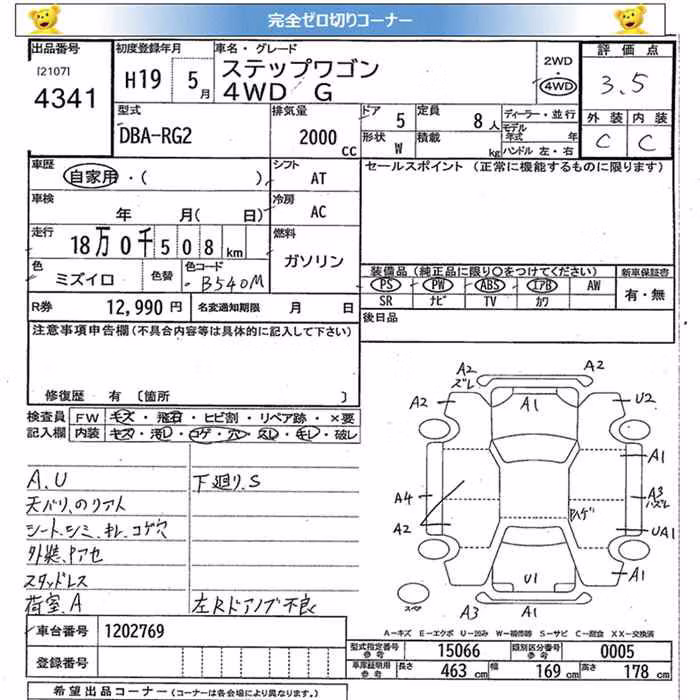 完全ゼロ切りコーナー
出品番号
[2107]
4341
初度登録年月
H19 5月
車名・グレード
ステップワゴン
4WD G
2WD
・
4WD
評価点
3.5
外装 内装
C C
型式
DBA-RG2
排気量
2000 CC
ドア 5
定員 8人
形状 W
積載 kg
ディーラー・並行
モデル年式 年
ハンドル 左・右
車歴
自家用・( )
シフト
AT
セールスポイント (正常に機能するものに限ります)
車検
年 月( 日)
冷房
AC
走行
18万0千508km
燃料
ガソリン
色
ミズイロ
色替
色コード
B540M
装備品(純正品に限り○をつけてください)
新車保証書
PS PW ABS エアB AW
有・無
SR ナビ TV カワ
R券 12,990円
名変通知期限 月 日
後日品
注意事項申告欄(不具合内容等は具体的に記入して下さい)
修復歴 有 〔箇所 〕
検査員 FW キズ・飛石・ヒビ割・リペア跡・×要
記入欄 内装 キズ・汚レ・コゲ・穴・スレ・キレ・破レ
A.U
天バリ、のリアト
シート、シミ、キレ、コゲ穴
外装、Pアセ
スタッドレス
荷室、A
下廻り、S
左Rドアノブ不良
A2 A2
ズレ
A2 A1 U2
A1
A4 A3
ハズレ
A2 Pハゲ UA1
U1 A1
スペア
A3 A1
A－キズ E－エクボ U－凹み W－補修跡 S－サビ C－腐食 XX－交換済
車台番号 1202769
登録番号
型式指定番号 参考 15066
類別区分番号 参考 0005
車庫証明用 参考 長さ 463cm 幅 169cm 高さ 178cm
希望出品コーナー(コーナーは各会場により異なります。)